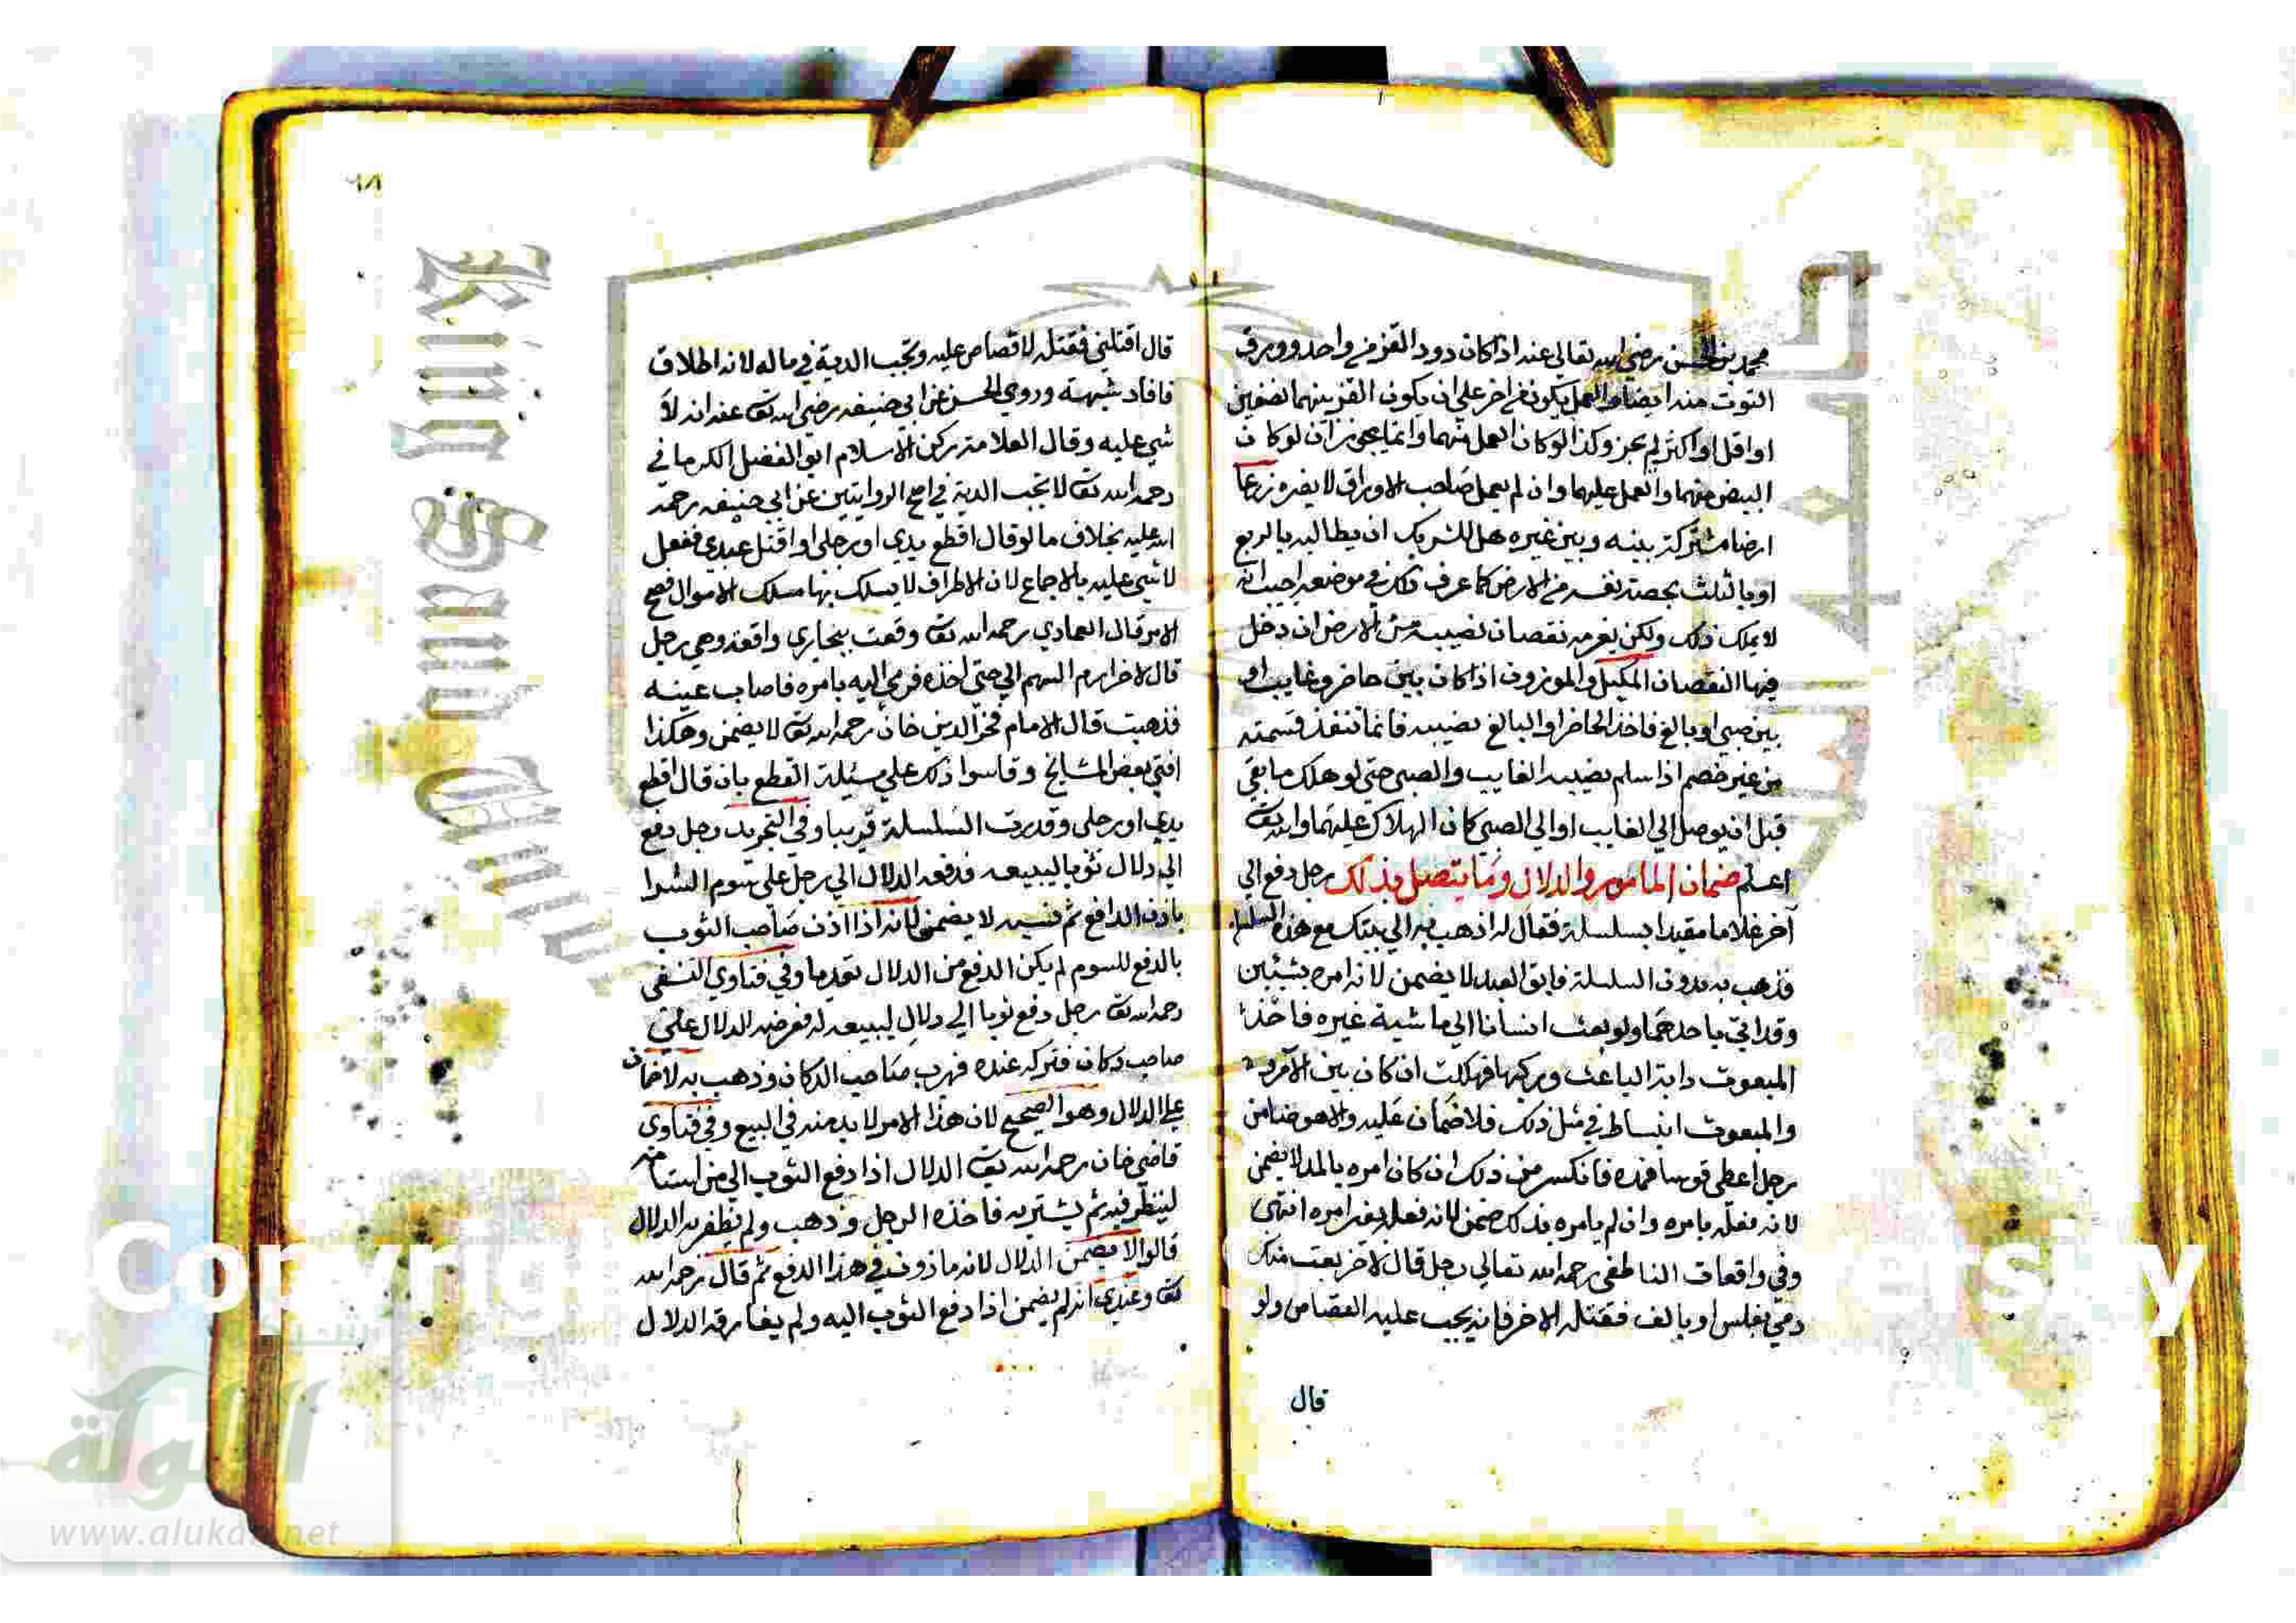 محمد بن الحسن رضي الله تعالى عنه اذا كان دود القز من واحد وورق
التوت منه ايضا والعمل يكون من اخر على ان يكون القز بينهما نصفين
او اقل او اكثر لم يجز وكذا لو كان العمل منهما وانما يجوز ان لو كان
البيض منهما والعمل عليهما وان لم يعمل صاحب الاوراق لا يضره زرعا
ارضا مشتركة بينه وبين غيره هل للشريك ان يطالبه بالربع
او بالثلث بحصة نفسه من الارض كما عرف ذلك في موضعه اجيب انه
لا يملك ذلك ولكن يغرمه نقصان نصيبه من الارض ان دخل
فيها النقصان المكيل والموزون اذا كان بين حاضر وغايب او
بين صبي وبالغ فاخذ الحاضر او البالغ نصيبه فانما تنفذ قسمته
من غير خصم اذا سلم نصيب الغايب والصبي حتى لو هلك ما بقي
قبل ان يوصل الي الغايب او الي الصبي كان الهلاك عليهما والله تعـ
اعلم ضمان المامور والدلال وما يتصل بذلك رجل دفع الي
آخر غلاما مقيدا بسلسلة فقال له اذهب به الي بيتك مع هذه السلسلة
فذهب به بدون السلسلة فابق العبد لا يضمن لانه امره بشيئين
وقد اتي باحدهما ولو بعث انسانا الي ماشية غيره فاخذ
المبعوث دابة الباعث وركبها فهلكت ان كان بين الآمر
والمبعوث انبساط في مثل ذلك فلا ضمان عليه والا هو ضامن
رجل اعطي قوسا فمده فانكسر من ذلك ان كان امره بالمد لا يضمن
لانه فعله بامره وان لم يامره بذلك ضمن لانه فعله بغير امره انتهى
وفي واقعات الناطفي رحمه الله تعالي رجل قال لاخر بعت منك
دمي بفلس او بالف فقتله الاخر فانه يجب عليه القصاص ولو
قال
قال اقتلني فقتله لا قصاص عليه وتجب الدية في ماله لانه اطلاق
فافاد شبهة وروي الحسن عن ابي حنيفه رضي الله تعـ عنه انه لا
شي عليه وقال العلامة ركن الاسلام ابو الفضل الكرماني
رحمه الله تعـ لا تجب الدية في اصح الروايتين عن ابي حنيفه رحمة
الله عليه بخلاف ما لو قال اقطع يدي او رجلي او اقتل عبدي ففعل
لا شي عليه بالاجماع لان الاطراف لا يسلك بها مسلك الاموال فصح
الامر قال العمادي رحمه الله تعـ وقعت ببخاري واقعة وهي رجل
قال لاخر ارم السهم الي حتى اخذه فرمي اليه بامره فاصاب عينه
فذهبت قال الامام فخر الدين خان رحمه الله تعـ لا يضمن وهكذا
افتي بعض المشايخ وقاسوا ذلك علي مسئلة القطع بان قال اقطع
يدي او رجلي وقد مرت السلسلة قريبا وفي التجريد رجل دفع
الي دلال ثوبا ليبيعه فدفعه الدلال الي رجل علي سوم الشرا
باذن الدافع ثم نسيه لا يضمن لانه اذا اذن صاحب الثوب
بالدفع للسوم لم يكن الدفع من الدلال تعديا وفي فتاوي النسفي
رحمه الله تعـ رجل دفع ثوبا الي دلال ليبيعه له فعرضه الدلال علي
صاحب دكان فتركه عنده فهرب صاحب الدكان وذهب به لا ضمان
علي الدلال وهو الصحيح لان هذا الامر لا بد منه في البيع وفي فتاوي
قاضي خان رحمه الله تعـ الدلال اذا دفع الثوب الي من استامه
لينظر فيه ثم يشتريه فاخذه الرجل وذهب ولم يظفر به الدلال
قالوا لا يضمن الدلال لانه ماذون في هذا الدفع ثم قال رحمه الله
تعـ وعندي انه لم يضمن اذا دفع الثوب اليه ولم يفارقه الدلال
King Saud
Copyrig
www.alukah.net
الألوكة